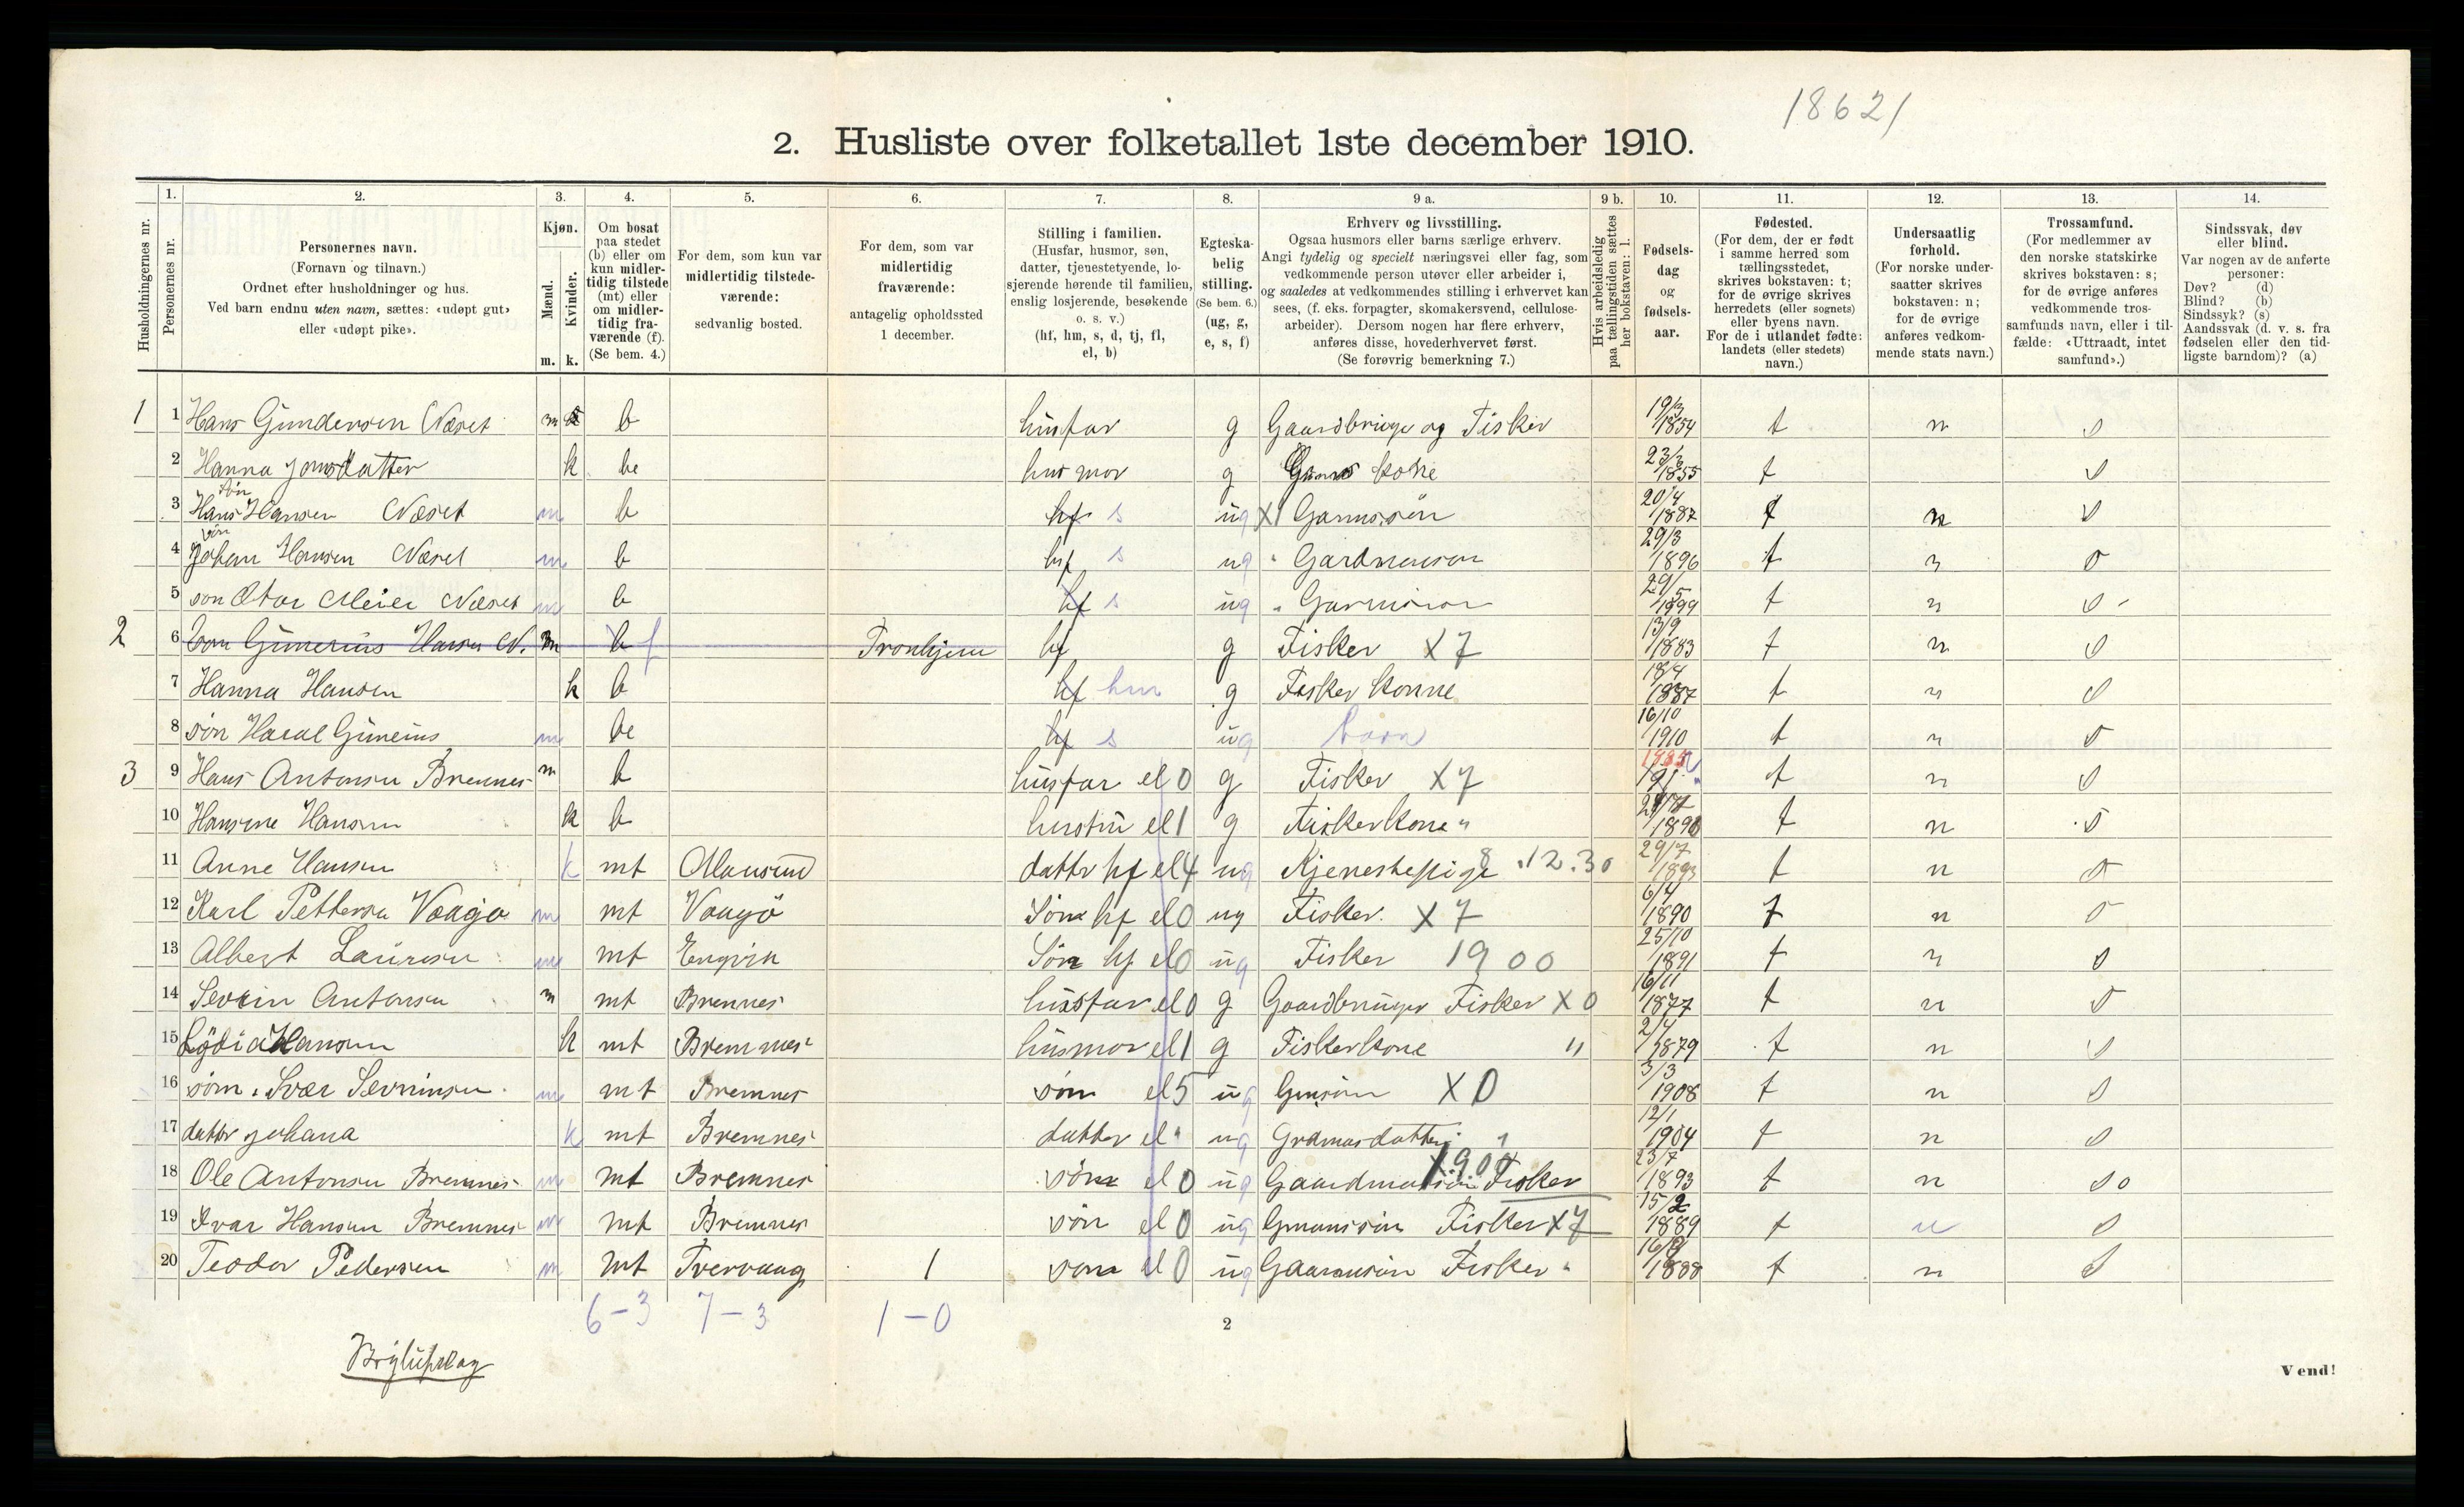 18621
2. Husliste over folketallet 1ste december 1910.
Husholdningernes nr.
1. Personernes nr.
2. Personernes navn. (Fornavn og tilnavn.) Ordnet efter husholdninger og hus. Ved barn endnu uten navn, sættes: «udøpt gut» eller «udøpt pike».
3. Kjøn. Mænd. m. Kvinder. k.
4. Om bosat paa stedet (b) eller om kun midlertidig tilstede (mt) eller om midlertidig fraværende (f). (Se bem. 4.)
5. For dem, som kun var midlertidig tilstedeværende: sedvanlig bosted.
6. For dem, som var midlertidig fraværende: antagelig opholdssted 1 december.
7. Stilling i familien. (Husfar, husmor, søn, datter, tjenestetyende, losjerende hørende til familien, enslig losjerende, besøkende o. s. v.) (hf, hm, s, d, tj, fl, el, b)
8. Egteskabelig stilling. (Se bem. 6.) (ug, g, e, s, f)
9 a. Erhverv og livsstilling. Ogsaa husmors eller barns særlige erhverv. Angi tydelig og specielt næringsvei eller fag, som vedkommende person utøver eller arbeider i, og saaledes at vedkommendes stilling i erhvervet kan sees, (f. eks. forpagter, skomakersvend, cellulosearbeider). Dersom nogen har flere erhverv, anføres disse, hovederhvervet først. (Se forøvrig bemerkning 7.)
9 b. Hvis arbeidsledig paa tællingstiden sættes her bokstaven: l.
10. Fødselsdag og fødselsaar.
11. Fødested. (For dem, der er født i samme herred som tællingsstedet, skrives bokstaven: t; for de øvrige skrives herredets (eller sognets) eller byens navn. For de i utlandet fødte: landets (eller stedets) navn.)
12. Undersaatlig forhold. (For norske undersaatter skrives bokstaven: n; for de øvrige anføres vedkommende stats navn.)
13. Trossamfund. (For medlemmer av den norske statskirke skrives bokstaven: s; for de øvrige anføres vedkommende trossamfunds navn, eller i tilfælde: «Uttraadt, intet samfund».)
14. Sindssvak, døv eller blind. Var nogen av de anførte personer: Døv? (d) Blind? (b) Sindssyk? (s) Aandssvak (d. v. s. fra fødselen eller den tidligste barndom)? (a)
1 1 Hans Gundersen Næset m b husfar g Gaardbruger og Fisker 19/3 1854 t n s
2 Hanna Jonsdatter k be husmor g kone 23/3 1855 t s
3 søn Hans Hansen Næset m b hf s ug X1 Gamssøn 20/4 1887 t n s
4 søn Johan Hansen Næset m b hf s ug " Gardmanson 29/3 1896 t n s
5 son Otar Meier Næset m b hf s ug " 29/5 1899 t n s
2 6 Son Gunerius Hansen N. m b f Tronhjem hf g Fisker X 7 13/9 1883 t n s
7 Hanna Hansen k b hf hm g Fisker konne 18/4 1887 t n s
8 søn Haral Gunerius m be hf s ug barn 16/10 1910 t n s
3 9 Hans Antonsen Bremnes m b husfar el 0 g Fisker X 7 t n s
10 Hansine Hansen k b el 1 g Fiskerkone " 1890 t n s
11 Anne Hansen k mt Mausund datter hf el 4 ug Tjenestepige 8.12.30 29/7 1893 t n s
12 Karl Pettersen Vaagø m mt Vaagø Søn hf el 0 ug Fisker. X 7 6/4 1890 t n s
13 Albert Laurisen m mt Søn hf el 0 ug Fisker 1900 25/10 1891 t n s
14 Severin Antonsen m mt Bremnes husfar el 0 g Gaardbruger Fisker X 0 16/11 1877 t n s
15 Lydia Hansen k mt Bremnes husmor el 1 g Fiskerkone " 2/4 1879 t n s
16 søn. Ivar Sevrinsen m mt Bremnes søn el 5 ug Gmsøn X 0 3/3 1908 t n s
17 datter Johana k mt Bremnes datter el " ug Grdmansdatter " 12/1 1904 t n s
18 Ole Antonsen Bremnes m mt Bremnes søn el 0 ug Gaardmansøn Fisker X.900 23/7 1893 t n s o
19 Ivar Hansen Bremnes m mt Bremnes søn el 0 ug Gmanssøn Fisker X 7 15/2 1889 t n s
20 Teodor Pedersen m mt Tvervaag 1 søn el 0 ug Fisker " 1888 t n s
6 – 3 7 – 3 1 – 0
2
Brylupslag
Vend!